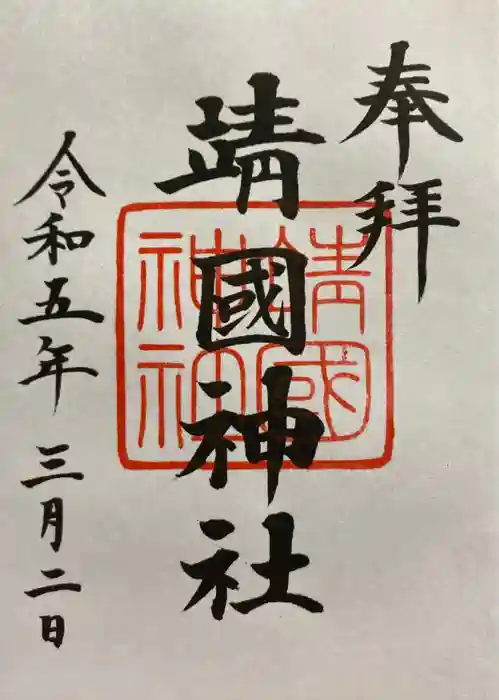 奉拝
靖國神社
靖國
神社
令和五年三月二日